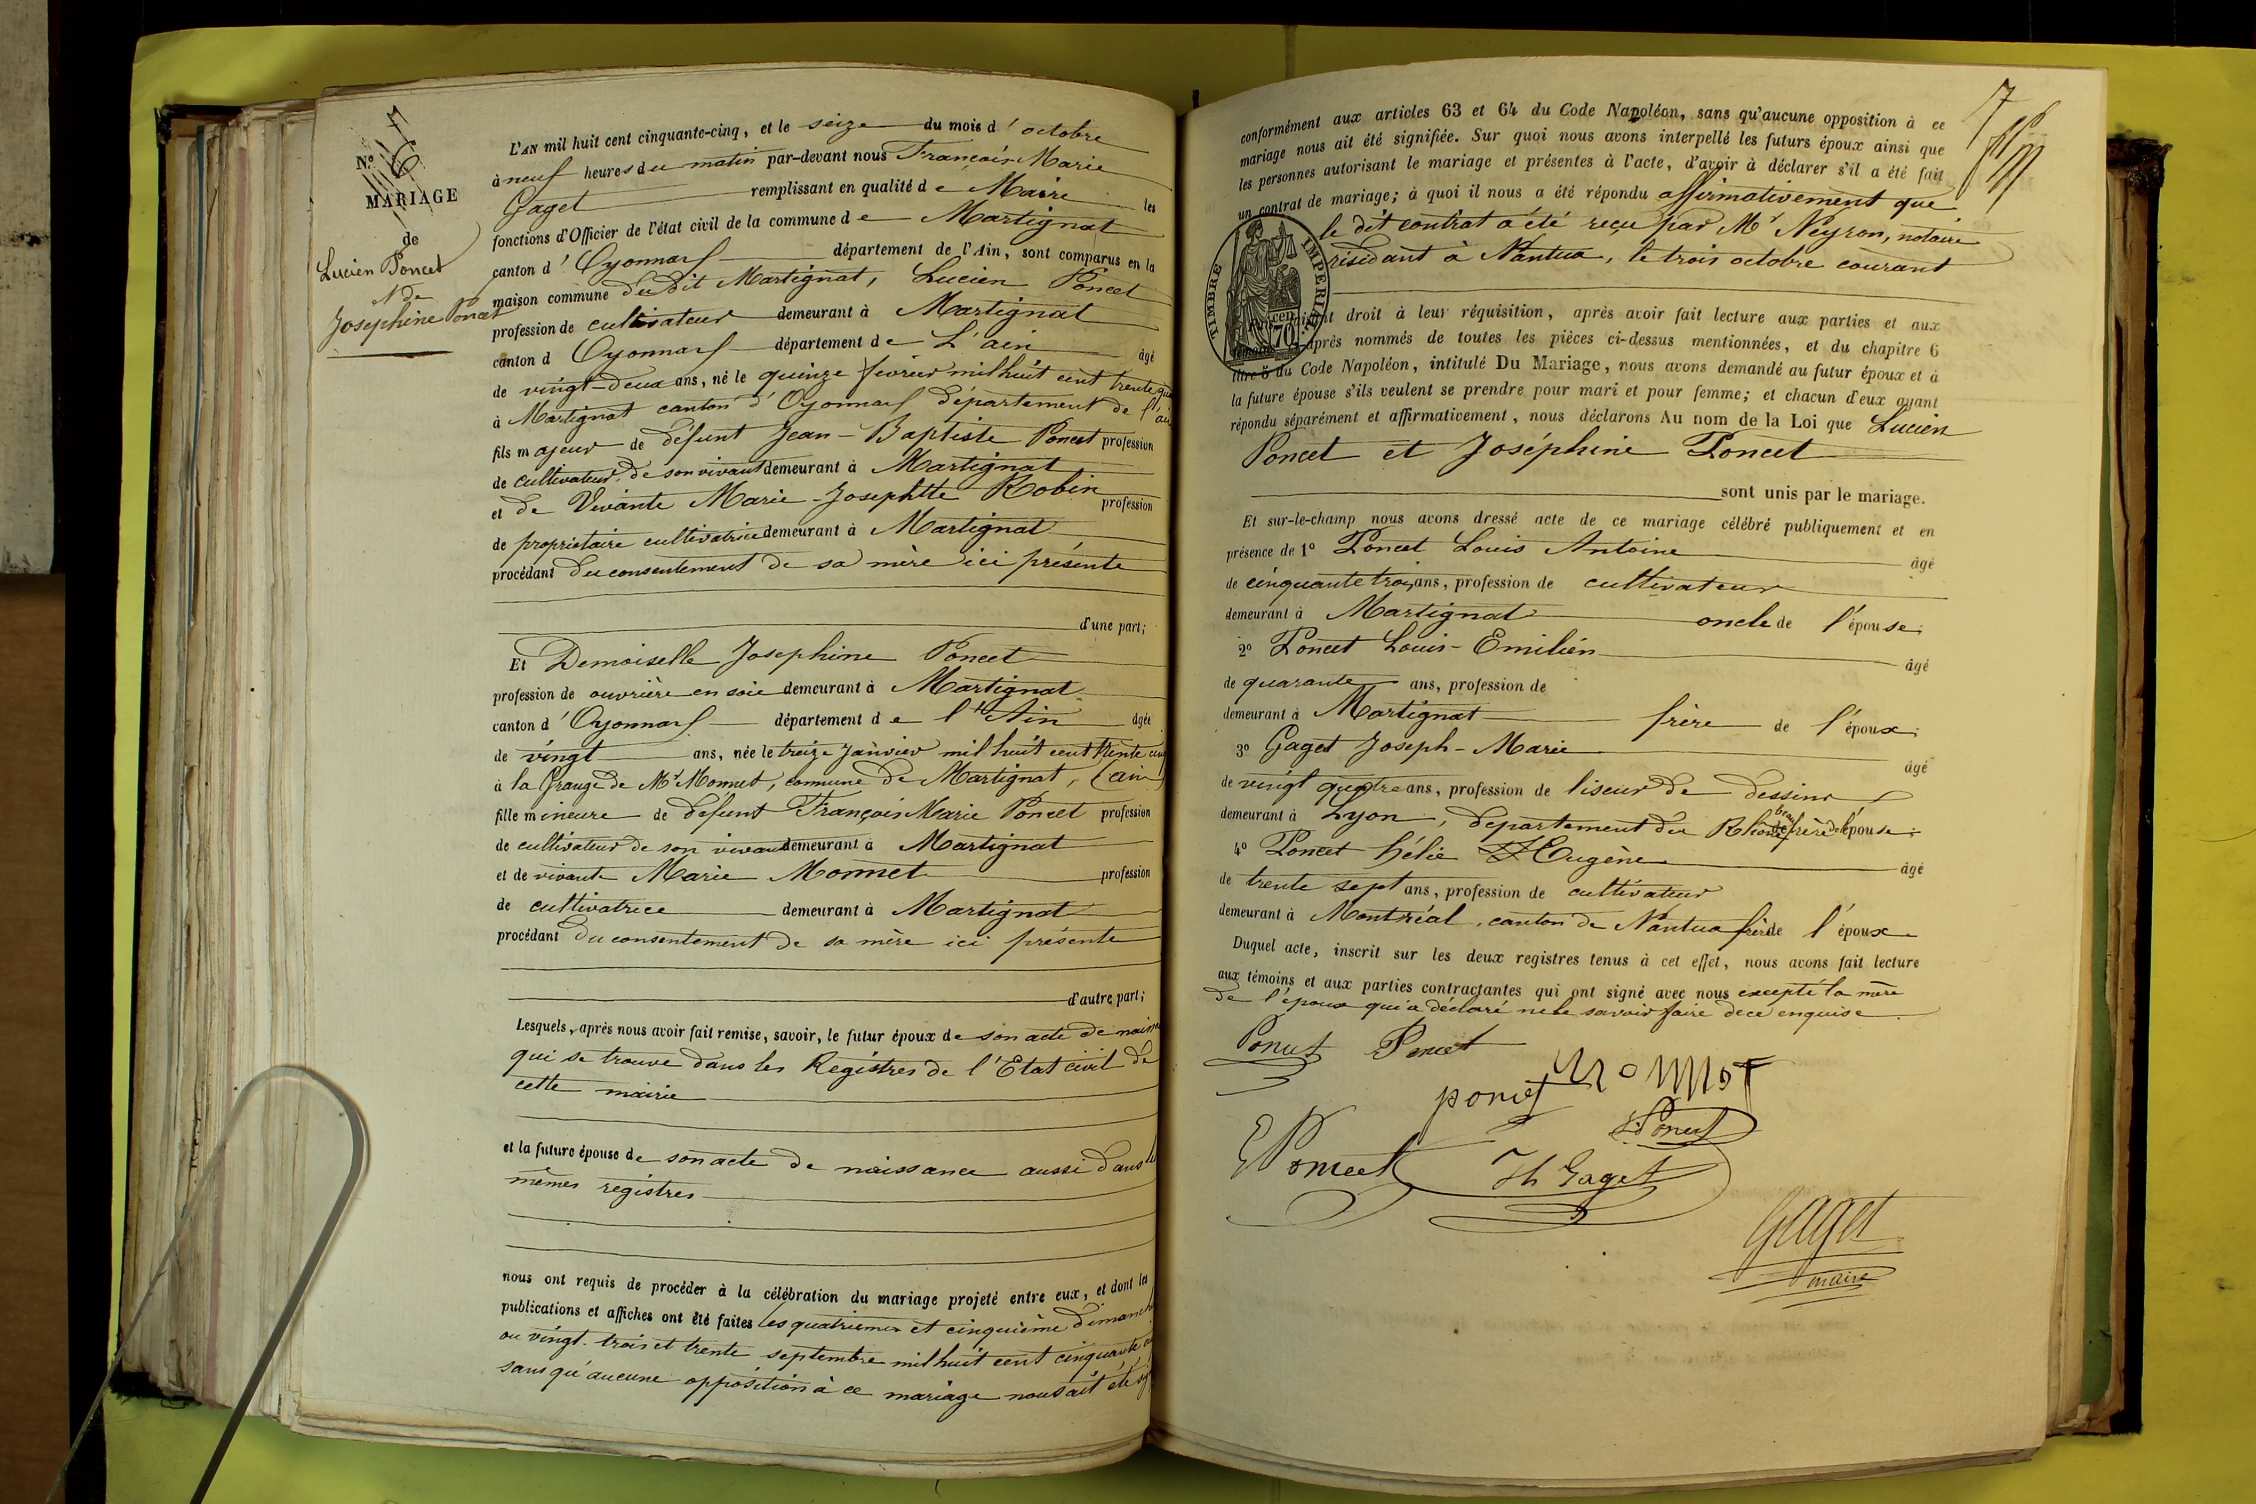 7
N.º 6
MARIAGE
de
Lucien Poncet
& de
Josephine Poncet
L'AN mil huit cent cinquante-cinq, et le seize du mois d'octobre
à neuf heures du matin par-devant nous François Marie
Gaget remplissant en qualité de Maire les
fonctions d'Officier de l'état civil de la commune de Martignat
canton d'Oyonnax département de l'Ain, sont comparus en la
maison commune du dit Martignat, Lucien Poncet
profession de cultivateur demeurant à Martignat
canton d Oyonnax département de L'ain âgé
de vingt-deux ans, né le quinze fevrier mil huit cent trente
à Martignat canton d'Oyonnax département de l'ain
fils majeur de défunt Jean-Baptiste Poncet profession
de cultivateur de son vivant demeurant à Martignat
et de Vivante Marie Josephtte Robin profession
de propriétaire cultivatrice demeurant à Martignat
procédant du consentement de sa mère ici présente
d'une part;
Et Demoiselle Josephine Poncet
profession de ouvrière en soie demeurant à Martignat
canton d'Oyonnax département de l'Ain âgée
de vingt ans, née le treize Janvier mil huit cent trente cinq
à la Grange de Mr Monnet, commune de Martignat, (ain)
fille mineure de défunt François Marie Poncet profession
de cultivateur de son vivant demeurant à Martignat
et de vivante Marie Monnet profession
de cultivatrice demeurant à Martignat
procédant du consentement de sa mère ici présente
d'autre part;
Lesquels, après nous avoir fait remise, savoir, le futur époux de son acte de
qui se trouve dans les Registres de l'Etat civil de
cette mairie
et la future épouse de son acte de naissance aussi dans les
mêmes registres
nous ont requis de procéder à la célébration du mariage projeté entre eux, et dont les
publications et affiches ont été faites les quatrième et cinquième dimanche
ou vingt-trois et trente septembre mil huit cent cinquante
sans qu'aucune opposition à ce mariage nous ait été
7
conformément aux articles 63 et 64 du Code Napoléon, sans qu'aucune opposition à ce
mariage nous ait été signifiée. Sur quoi nous avons interpellé les futurs époux ainsi que
les personnes autorisant le mariage et présentes à l'acte, d'avoir à déclarer s'il a été fait
un contrat de mariage; à quoi il nous a été répondu affirmativement que
le dit contrat a été reçu par Mr Neyron, notaire
résidant à Nantua, le trois octobre courant
TIMBRE IMPERIAL
70
droit à leur réquisition, après avoir fait lecture aux parties et aux
après nommés de toutes les pièces ci-dessus mentionnées, et du chapitre 6
titre 5 du Code Napoléon, intitulé Du Mariage, nous avons demandé au futur époux et à
la future épouse s'ils veulent se prendre pour mari et pour femme; et chacun d'eux ayant
répondu séparément et affirmativement, nous déclarons Au nom de la Loi que Lucien
Poncet et Joséphine Poncet
sont unis par le mariage.
Et sur-le-champ nous avons dressé acte de ce mariage célébré publiquement et en
présence de 1º Poncet Louis Antoine âgé
de cinquante trois ans, profession de cultivateur
demeurant à Martignat oncle de l'épouse;
2º Poncet Louis-Emilien âgé
de quarante ans, profession de
demeurant à Martignat frère de l'époux;
3º Gaget Joseph-Marie âgé
de vingt quatre ans, profession de liseur de dessins
demeurant à Lyon, département du Rhône beau frère de l'épouse;
4º Poncet hélie Eugène âgé
de trente sept ans, profession de cultivateur
demeurant à Montréal, canton de Nantua frère de l'époux
Duquel acte, inscrit sur les deux registres tenus à cet effet, nous avons fait lecture
aux témoins et aux parties contractantes qui ont signé avec nous excepté la mère
de l'époux qui a déclaré ne le savoir faire de ce enquise.
Poncet Poncet
poncet Monnet
Poncet
E Poncet Jh Gaget
Gaget
maire